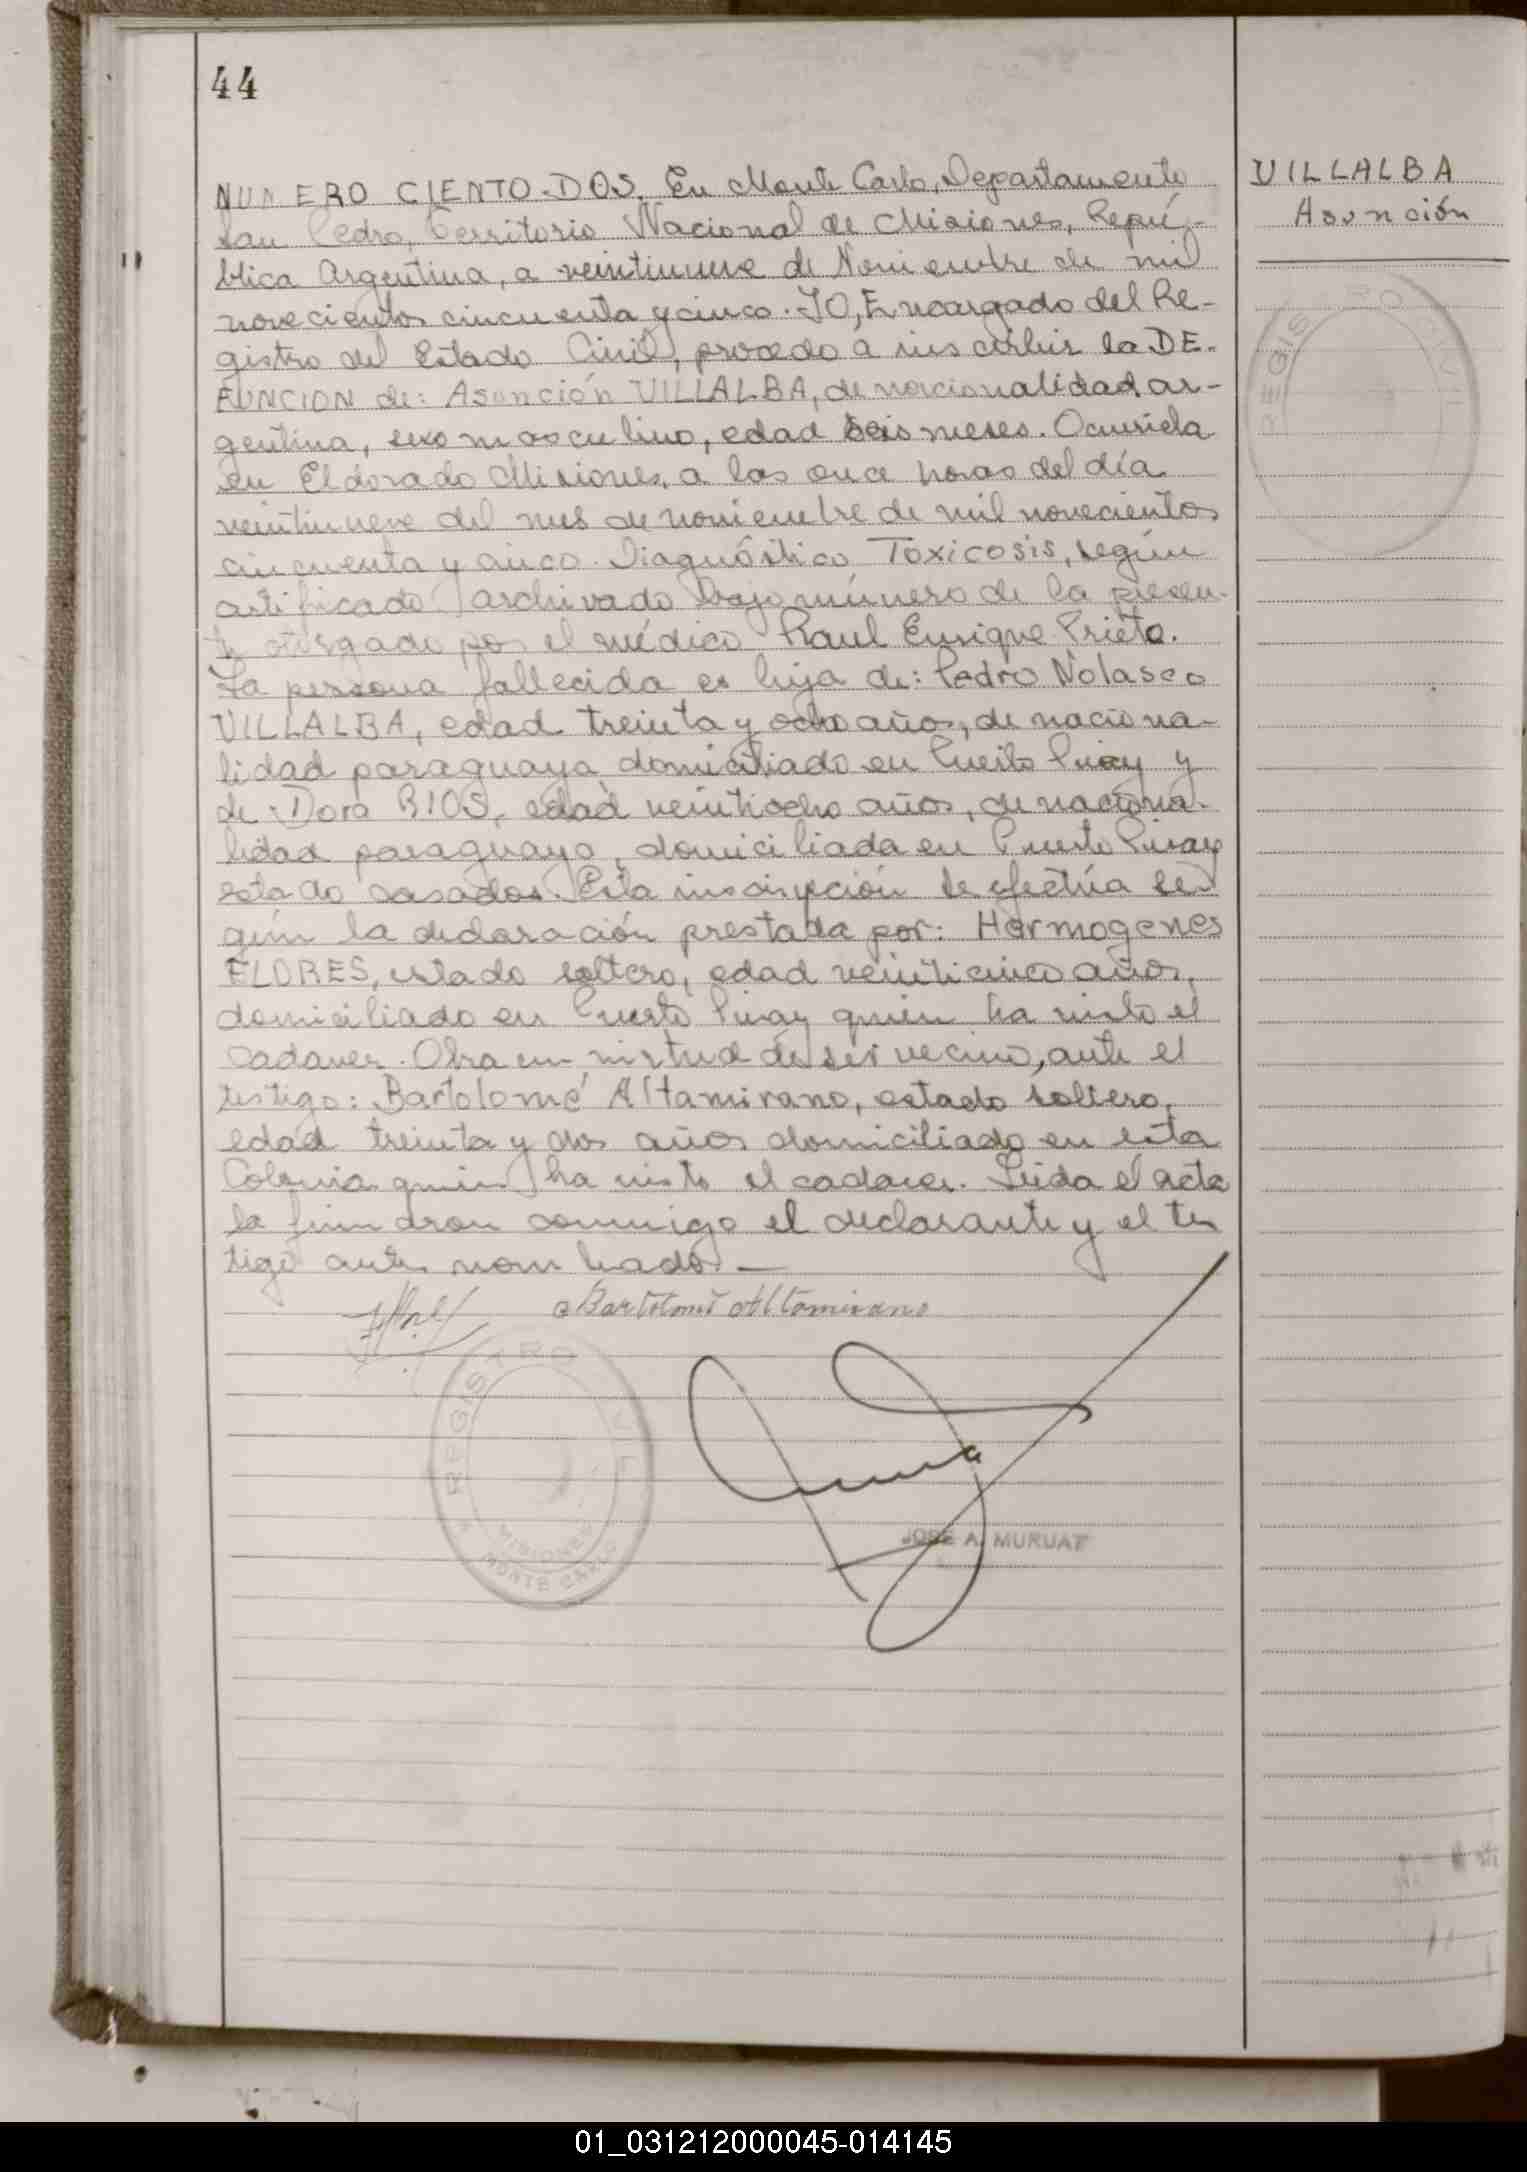 44
NUMERO CIENTO DOS. En Monte Carlo, Departamento
San Pedro, Territorio Nacional de Misiones, Repú-
blica Argentina, a veintinueve de Noviembre de mil
novecientos cincuenta y cinco. YO, Encargado del Re-
gistro del Estado Civil, procedo a inscribir la DE-
FUNCION de: Asunción VILLALBA, de nacionalidad ar-
gentina, sexo masculino, edad seis meses. Ocurrida
en Eldorado Misiones, a las once horas del día
veintinueve del mes de noviembre de mil novecientos
cincuenta y cinco. Diagnóstico Toxicosis, según
certificado archivado bajo número de la presen-
te otorgado por el médico Raul Enrique Prieto.
La persona fallecida es hija de: Pedro Nolasco
VILLALBA, edad treinta y ocho años, de naciona-
lidad paraguaya domiciliado en Puerto Piray y
de: Dora RIOS, edad veintiocho años, de naciona-
lidad paraguaya, domiciliada en Puerto Piray
estado casados. Esta inscripción se efectúa se-
gún la declaración prestada por: Hermogenes
FLORES, estado soltero, edad veinticinco años,
domiciliado en Puerto Piray quien ha visto el
cadaver. Obra en virtud de ser vecino, ante el
testigo: Bartolomé Altamirano, estado soltero,
edad treinta y dos años domiciliado en esta
Colonia quien ha visto el cadaver. Leida el acta
la firmaron conmigo el declarante y el tes
tigo antes nombrados —
Bartolomé Altamirano
REGISTRO CIVIL
MISIONES
MONTE CARLO
JOSE A. MURUAT
VILLALBA
Asunción
REGISTRO CIVIL
01_031212000045-014145